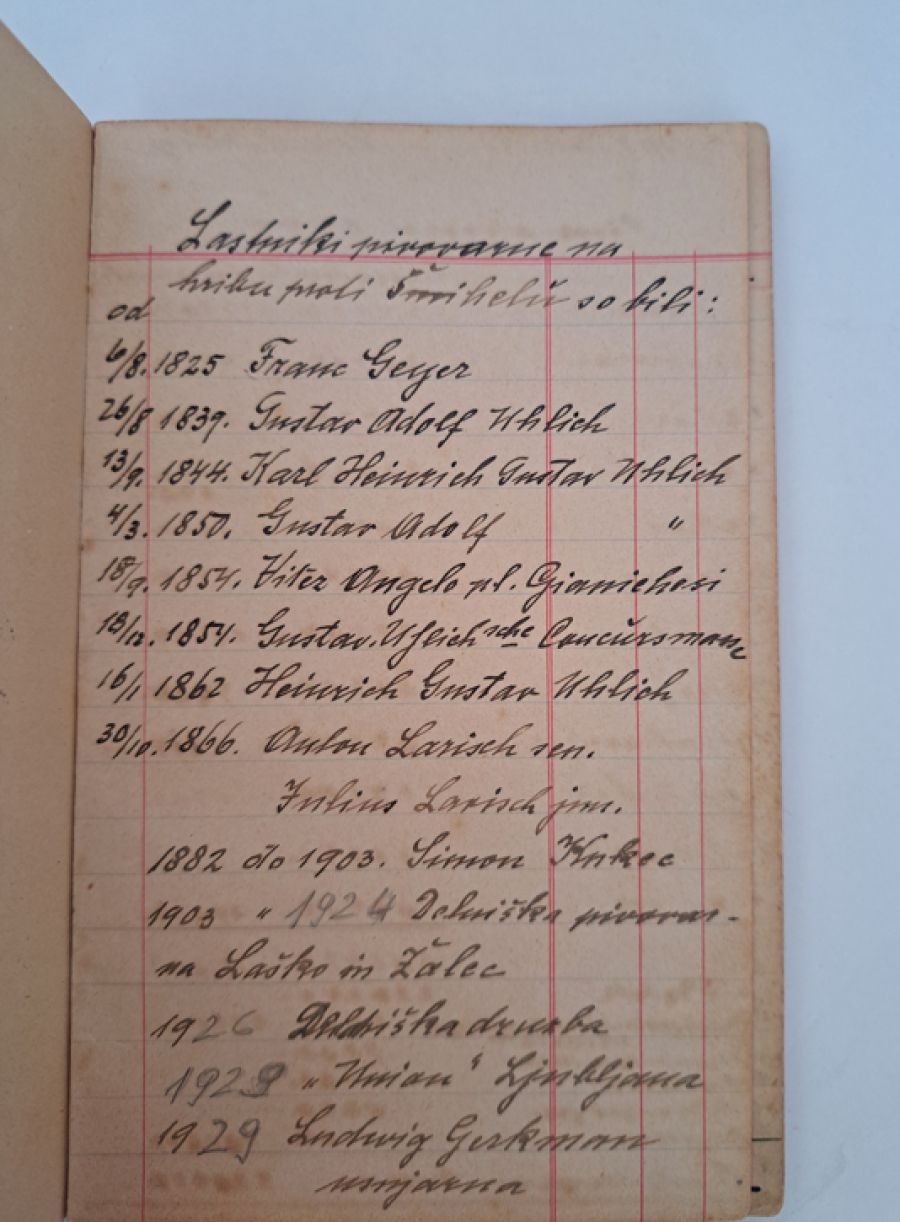 Lastniki pivovarne na
hribu proti Šmihelŭ so bili:
od
6/8. 1825 Franc Geyer
26/8 1839. Gustav Adolf Uhlich
13/9. 1844. Karl Heinrich Gustav Uhlich
4/3. 1850. Gustav Adolf "
18/9. 1854. Vitez Angelo pl.
1854. Gustav Uhlichsche Concŭrsmane
16/1 1862 Heinrich Gustav Uhlich
30/10. 1866. Anton Larisch sen.
Julius Larisch jun.
1882 do 1903. Simon Kukec
1903 " 1924 Delniška pivovar-
na Laško in Žalec
1926 Delniška družba
192 „Union" Ljubljana
1929 Ludwig Gerkman
usnjarna